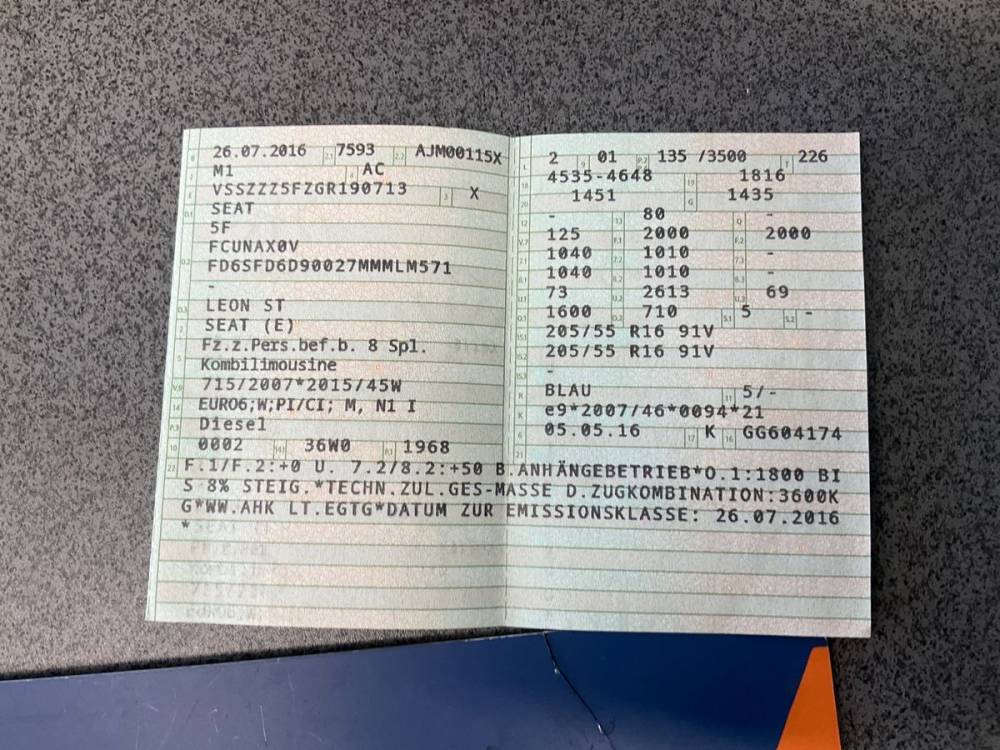 26.07.2016 7593 AJM00115X
M1 AC
VSSZZZ5FZGR190713 X
SEAT
5F
FCUNAX0V
FD6SFD6D90027MMMLM571
-
LEON ST
SEAT (E)
Fz.z.Pers.bef.b. 8 Spl.
Kombilimousine
715/2007*2015/45W
EURO6;W;PI/CI; M, N1 I
Diesel
0002 36W0 1968
2 01 135 /3500 226
4535-4648 1816
1451 1435
- 80 -
125 2000 2000
1040 1010 -
1040 1010 -
73 2613 69
1600 710 5 -
205/55 R16 91V
205/55 R16 91V
-
BLAU 5/-
e9*2007/46*0094*21
05.05.16 K GG604174
F.1/F.2:+0 U. 7.2/8.2:+50 B.ANHÄNGEBETRIEB*O.1:1800 BI
S 8% STEIG.*TECHN.ZUL.GES-MASSE D.ZUGKOMBINATION:3600K
G*WW.AHK LT.EGTG*DATUM ZUR EMISSIONSKLASSE: 26.07.2016
*